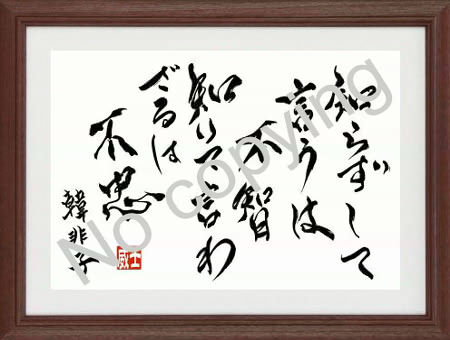 知らずして
言うは
不智
知りて言わ
ざるは
不忠
韓非子
No copying